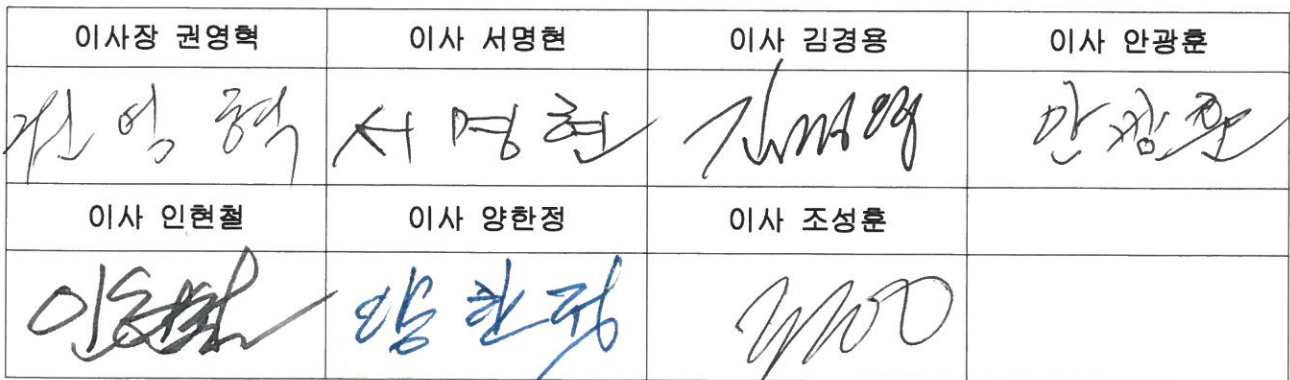 이사장 권영혁 이사 서명현 이사 김경용 이사 안광훈
권영혁 서명현 안광훈
이사 인현철 이사 양한정 이사 조성훈
양한정